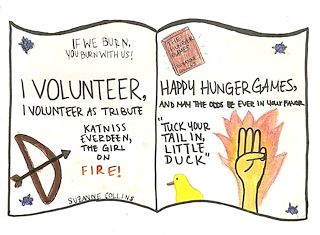 IF WE BURN,
YOU BURN WITH US!
I VOLUNTEER,
I VOLUNTEER AS TRIBUTE
KATNISS
EVERDEEN,
THE GIRL
ON
FIRE!
SUZANNE COLLINS
THE
HUNGER
GAMES
HAPPY HUNGER GAMES,
AND MAY THE ODDS BE EVER IN YOUR FAVOR
"TUCK YOUR
TAIL IN,
LITTLE
DUCK"